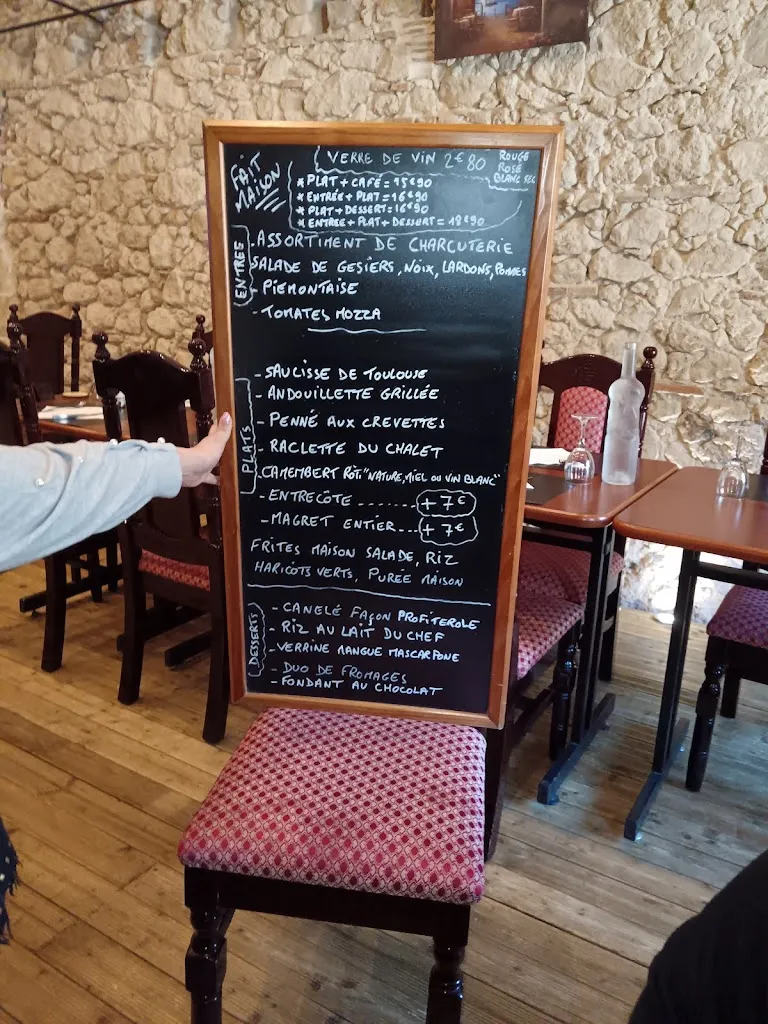 VERRE DE VIN 2€80
ROUGE
ROSÉ
BLANC SEC
FAIT
MAISON
* PLAT + CAFÉ = 15€90
* ENTRÉE + PLAT = 16€90
* PLAT + DESSERT = 16€90
* ENTRÉE + PLAT + DESSERT = 18€90
ENTRES
- ASSORTIMENT DE CHARCUTERIE
SALADE DE GESIERS, NOIX, LARDONS, POMMES
- PIEMONTAISE
- TOMATES MOZZA
PLATS
- SAUCISSE DE TOULOUSE
- ANDOUILLETTE GRILLÉE
- PENNÉ AUX CREVETTES
- RACLETTE DU CHALET
CAMEMBERT RÔTI "NATURE, MIEL OU VIN BLANC"
- ENTRECÔTE ........ +7€
- MAGRET ENTIER.... +7€
FRITES MAISON SALADE, RIZ
HARICOTS VERTS, PURÉE MAISON
DESSERTS
- CANELÉ FAÇON PROFITEROLE
- RIZ AU LAIT DU CHEF
- VERRINE MANGUE MASCARPONE
- DUO DE FROMAGES
- FONDANT AU CHOCOLAT